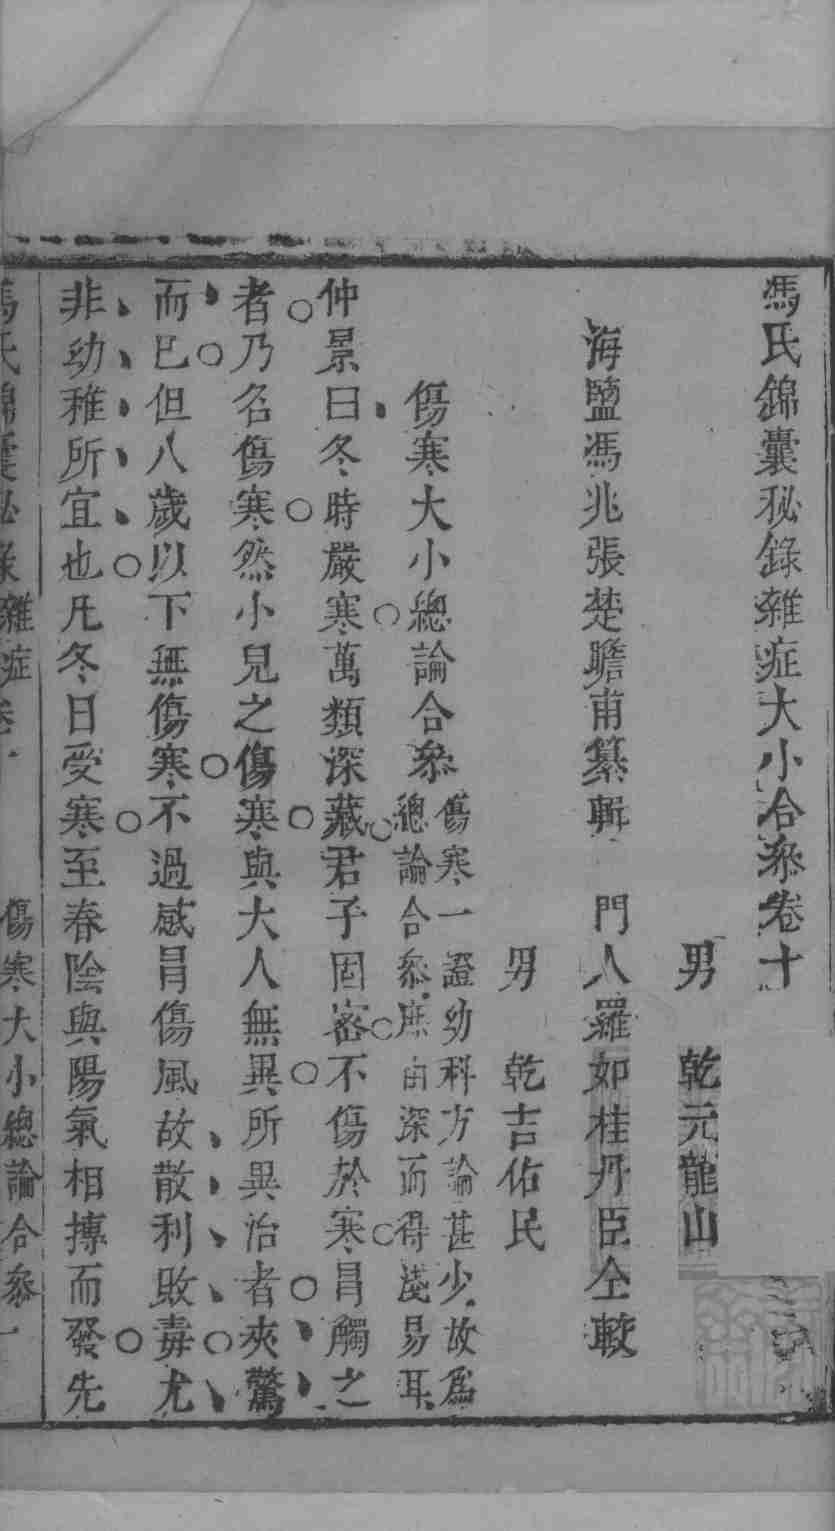 馮氏錦囊秘錄雜症大小合參卷十
男　乾元龍山
海鹽馮兆張楚瞻甫纂輯　門人羅如桂丹臣仝較
男　乾吉佑民
傷寒大小總論合參
傷寒一證幼科方論甚少故爲
總論合參庶由深而得淺易耳
仲景曰冬時嚴寒萬類深藏君子固密不傷於寒冐觸之
者乃名傷寒然小兒之傷寒與大人無異所異治者夾驚
而已但八歲以下無傷寒不過感冐傷風故散利敗毒尤
非幼稚所宜也凡冬日受寒至春陰與陽氣相摶而發先
馮氏錦囊秘錄雜症卷十　傷寒大小總論合參一